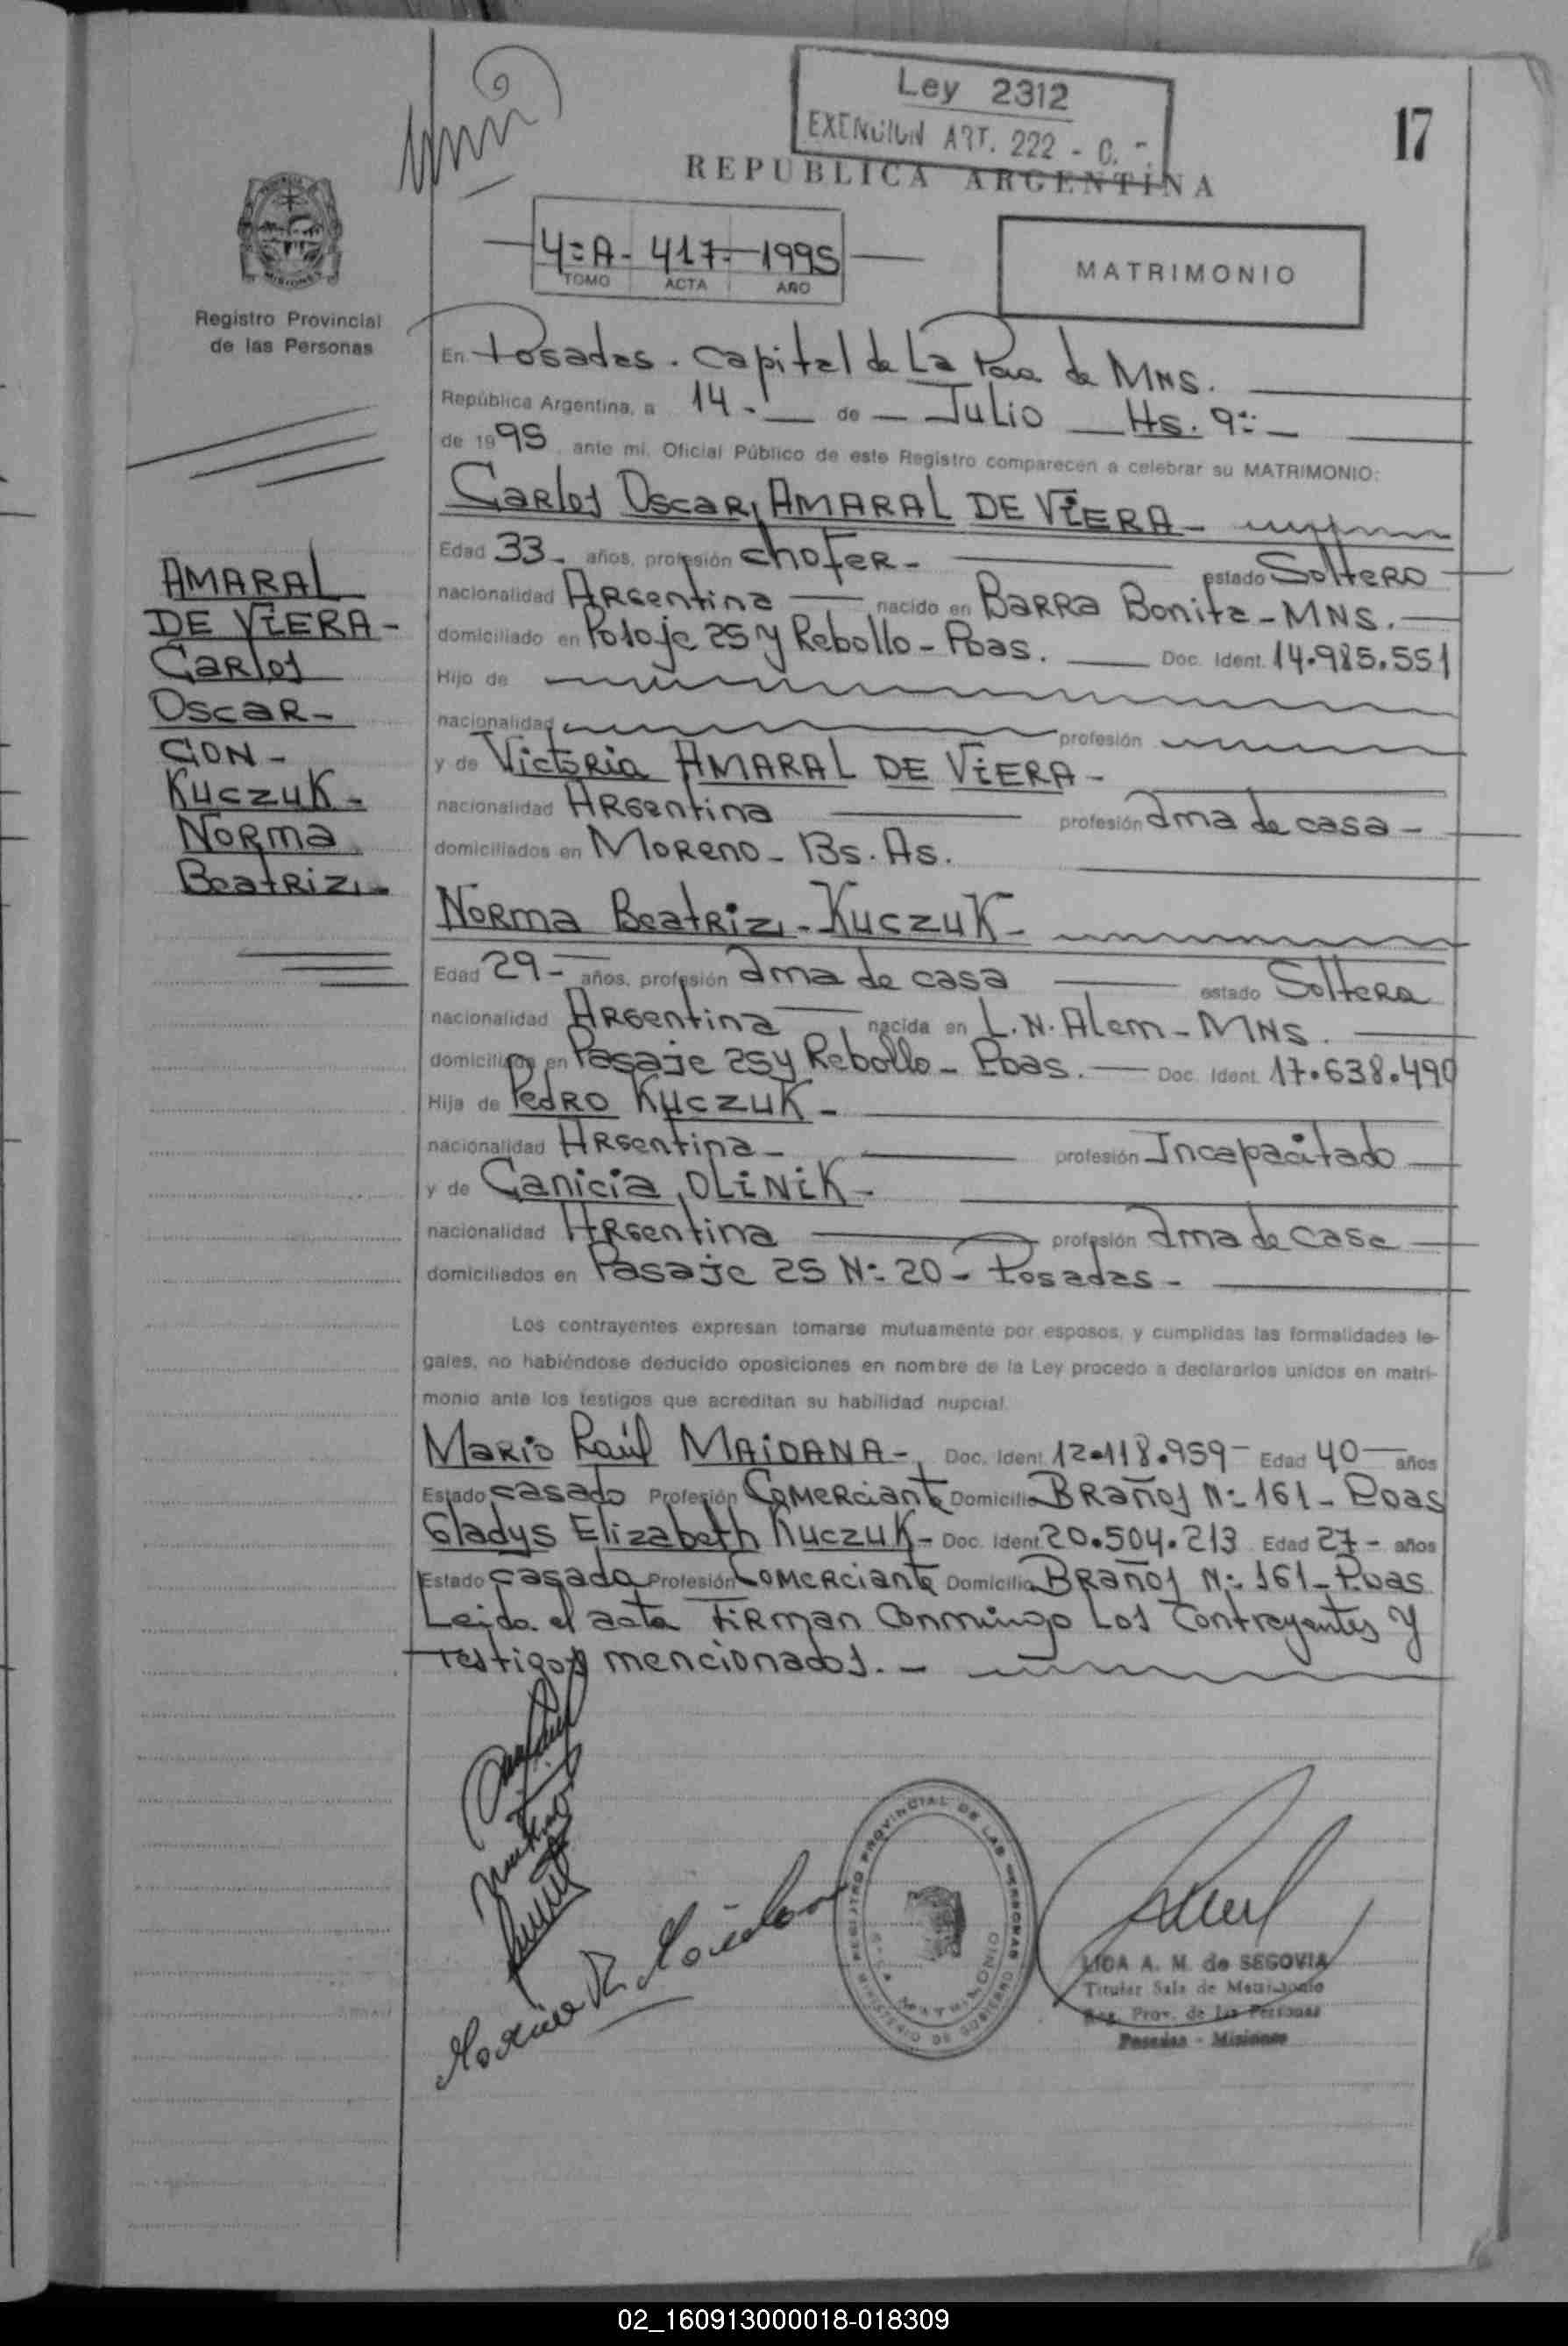 Ley 2312
EXENCION ART. 222 - C.
17
REPUBLICA ARGENTINA
4=A- 417- 1995
TOMO ACTA AÑO
MATRIMONIO
Registro Provincial
de las Personas
En Posadas. Capital de La Pcia de MNS.
República Argentina, a 14 - de - Julio Hs. 9
de 1995, ante mi, Oficial Público de este Registro comparecen a celebrar su MATRIMONIO:
Carlos Oscar, AMARAL DE ViERA -
Edad 33 - años, profesión chofer - estado Soltero
nacionalidad Argentina nacido en Barra Bonita - MNS.
domiciliado en 25 y Rebollo - Pdas. Doc. Ident. 14.985.551
Hijo de
nacionalidad profesión
y de Victoria AMARAL DE ViERA -
nacionalidad Argentina profesión ama de casa -
domiciliados en Moreno - Bs. As.
AMARAL
DE ViERA -
Carlos
Oscar -
CON -
Kuczuk -
Norma
Beatriz -
Norma Beatriz - Kuczuk -
Edad 29 - años, profesión ama de casa estado Soltera
nacionalidad Argentina nacida en L.N. Alem - MNS.
domiciliada en Pasaje 25 y Rebollo - Pdas. Doc. Ident. 17.638.490
Hija de Pedro Kuczuk -
nacionalidad Argentina - profesión Incapacitado
y de Canicia, OLiNiK -
nacionalidad Argentina profesión ama de casa
domiciliados en Pasaje 25 N= 20 - Posadas -
Los contrayentes expresan tomarse mutuamente por esposos, y cumplidas las formalidades le-
gales, no habiéndose deducido oposiciones en nombre de la Ley procedo a declararlos unidos en matri-
monio ante los testigos que acreditan su habilidad nupcial.
Mario Raúl MAiDANA - Doc. Ident. 12.118.959 - Edad 40 años
Estado casado Profesión Comerciante Domicilio Brañas N= 161 - Pdas
Gladys Elizabeth Kuczuk - Doc. Ident. 20.504.213 Edad 27 - años
Estado casada Profesión Comerciante Domicilio Brañas N= 161 - Pdas
Leida el acta firman conmingo Los contrayentes y
testigos mencionados. -
REGISTRO PROVINCIAL DE LAS PERSONAS
MATRIMONIO
MINISTERIO DE GOBIERNO
LIDA A. M. de SEGOVIA
Titular Sala de Matrimonio
Reg. Prov. de las Personas
Posadas - Misiones
02_160913000018-018309